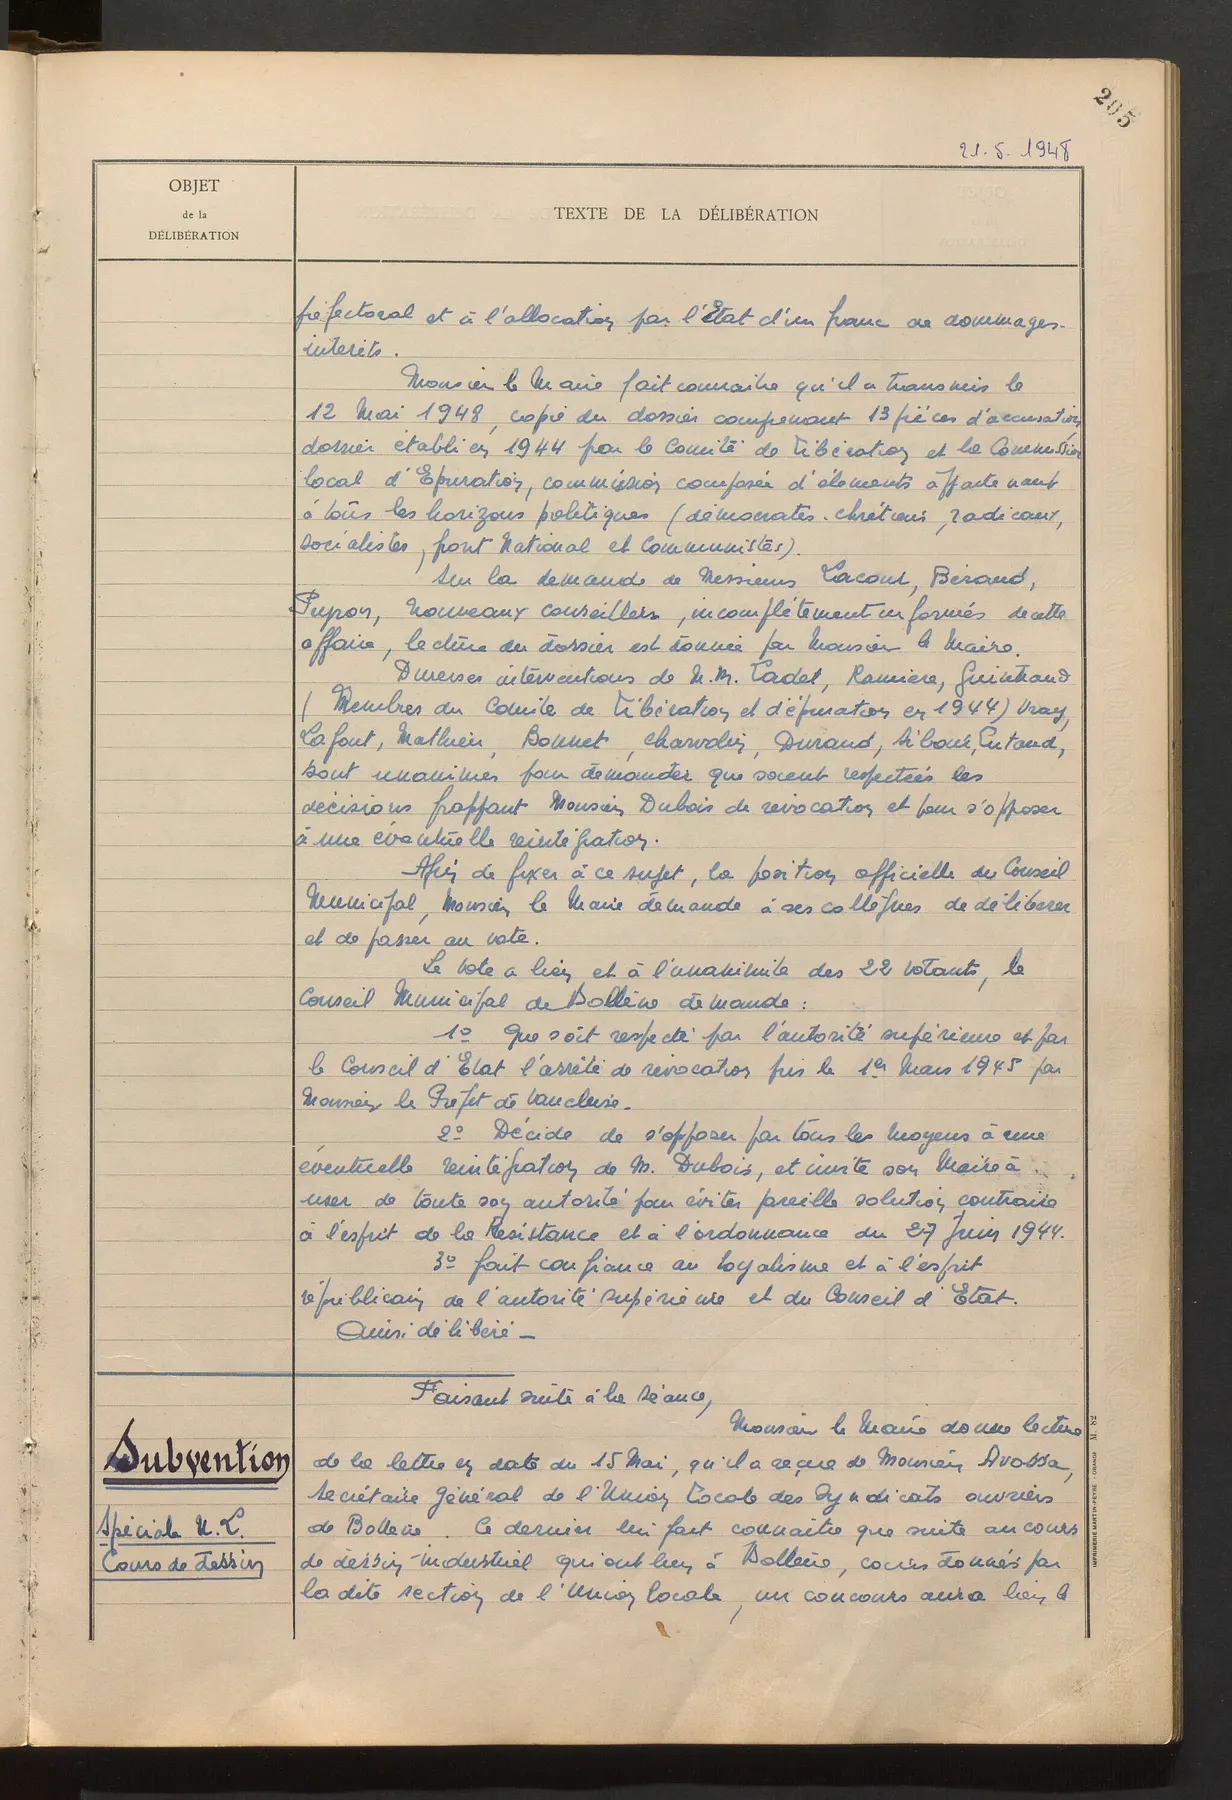 205
21.5.1948
OBJET
de la
DÉLIBÉRATION
TEXTE DE LA DÉLIBÉRATION
préfectoral et à l'allocation par l'Etat d'un franc de dommages-
intérêts.
Monsieur le Maire fait connaître qu'il a transmis le
12 Mai 1948, copie du dossier comprenant 13 pièces d'accusation,
dossier établi en 1944 par le Comité de Libération et la Commission
local d'Epuration, commission composée d'éléments appartenant
à tous les horizons politiques (démocrates-chrétiens, radicaux,
socialistes, front National et Communistes).
Sur la demande de Messieurs Lacour, Béraud,
Pupon, nouveaux conseillers, incomplètement informés de cette
affaire, lecture du dossier est donnée par Monsieur le Maire.
Diverses interventions de M.M. Cadet, Ramière, Guintrand
(Membres du Comité de Libération et d'épuration en 1944) Vray,
Lafont, Mathieu, Bonnet, Charvolin, Durand, Sibour, Eutand,
sont unanimes pour demander que soient respectées les
décisions frappant Monsieur Dubois de révocation et pour s'opposer
à une éventuelle réintégration.
Afin de fixer à ce sujet, la position officielle du Conseil
Municipal, Monsieur le Maire demande à ses collègues de délibérer
et de passer au vote.
Le vote a lieu et à l'unanimité des 22 votants, le
Conseil Municipal de Bollène demande :
1º Que soit respecté par l'autorité supérieure et par
le Conseil d'Etat l'arrêté de révocation pris le 1er Mars 1945 par
Monsieur le Préfet de Vaucluse.
2º Décide de s'opposer par tous les moyens à une
éventuelle réintégration de M. Dubois, et invite son Maire à
user de toute son autorité pour éviter pareille solution contraire
à l'esprit de la Résistance et à l'ordonnance du 27 Juin 1944.
3º fait confiance au loyalisme et à l'esprit
républicain de l'autorité supérieure et du Conseil d'Etat.
Ainsi délibéré —
Faisant suite à la séance,
Monsieur le Maire donne lecture
Subvention
de la lettre en date du 15 Mai, qu'il a reçue de Monsieur Avossa,
Secrétaire Général de l'Union Locale des Syndicats ouvriers
Spéciale U.L.
de Bollène. Ce dernier lui fait connaître que suite au cours
Cours de dessin
de dessin industriel qui ont lieu à Bollène, cours donnés par
la dite section de l'Union locale, un concours aura lieu le
IMPRIMERIE MARTIN-PEYRE - ORANGE M. 82